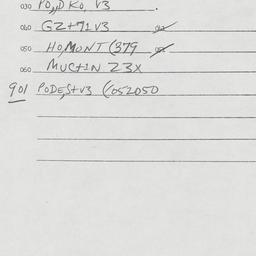 030 PO,,D KO, V3
060 GZ+71V3
050 HO,MONT (379
060 MUCTIN Z3X
901 PODE,S+V3 (052050